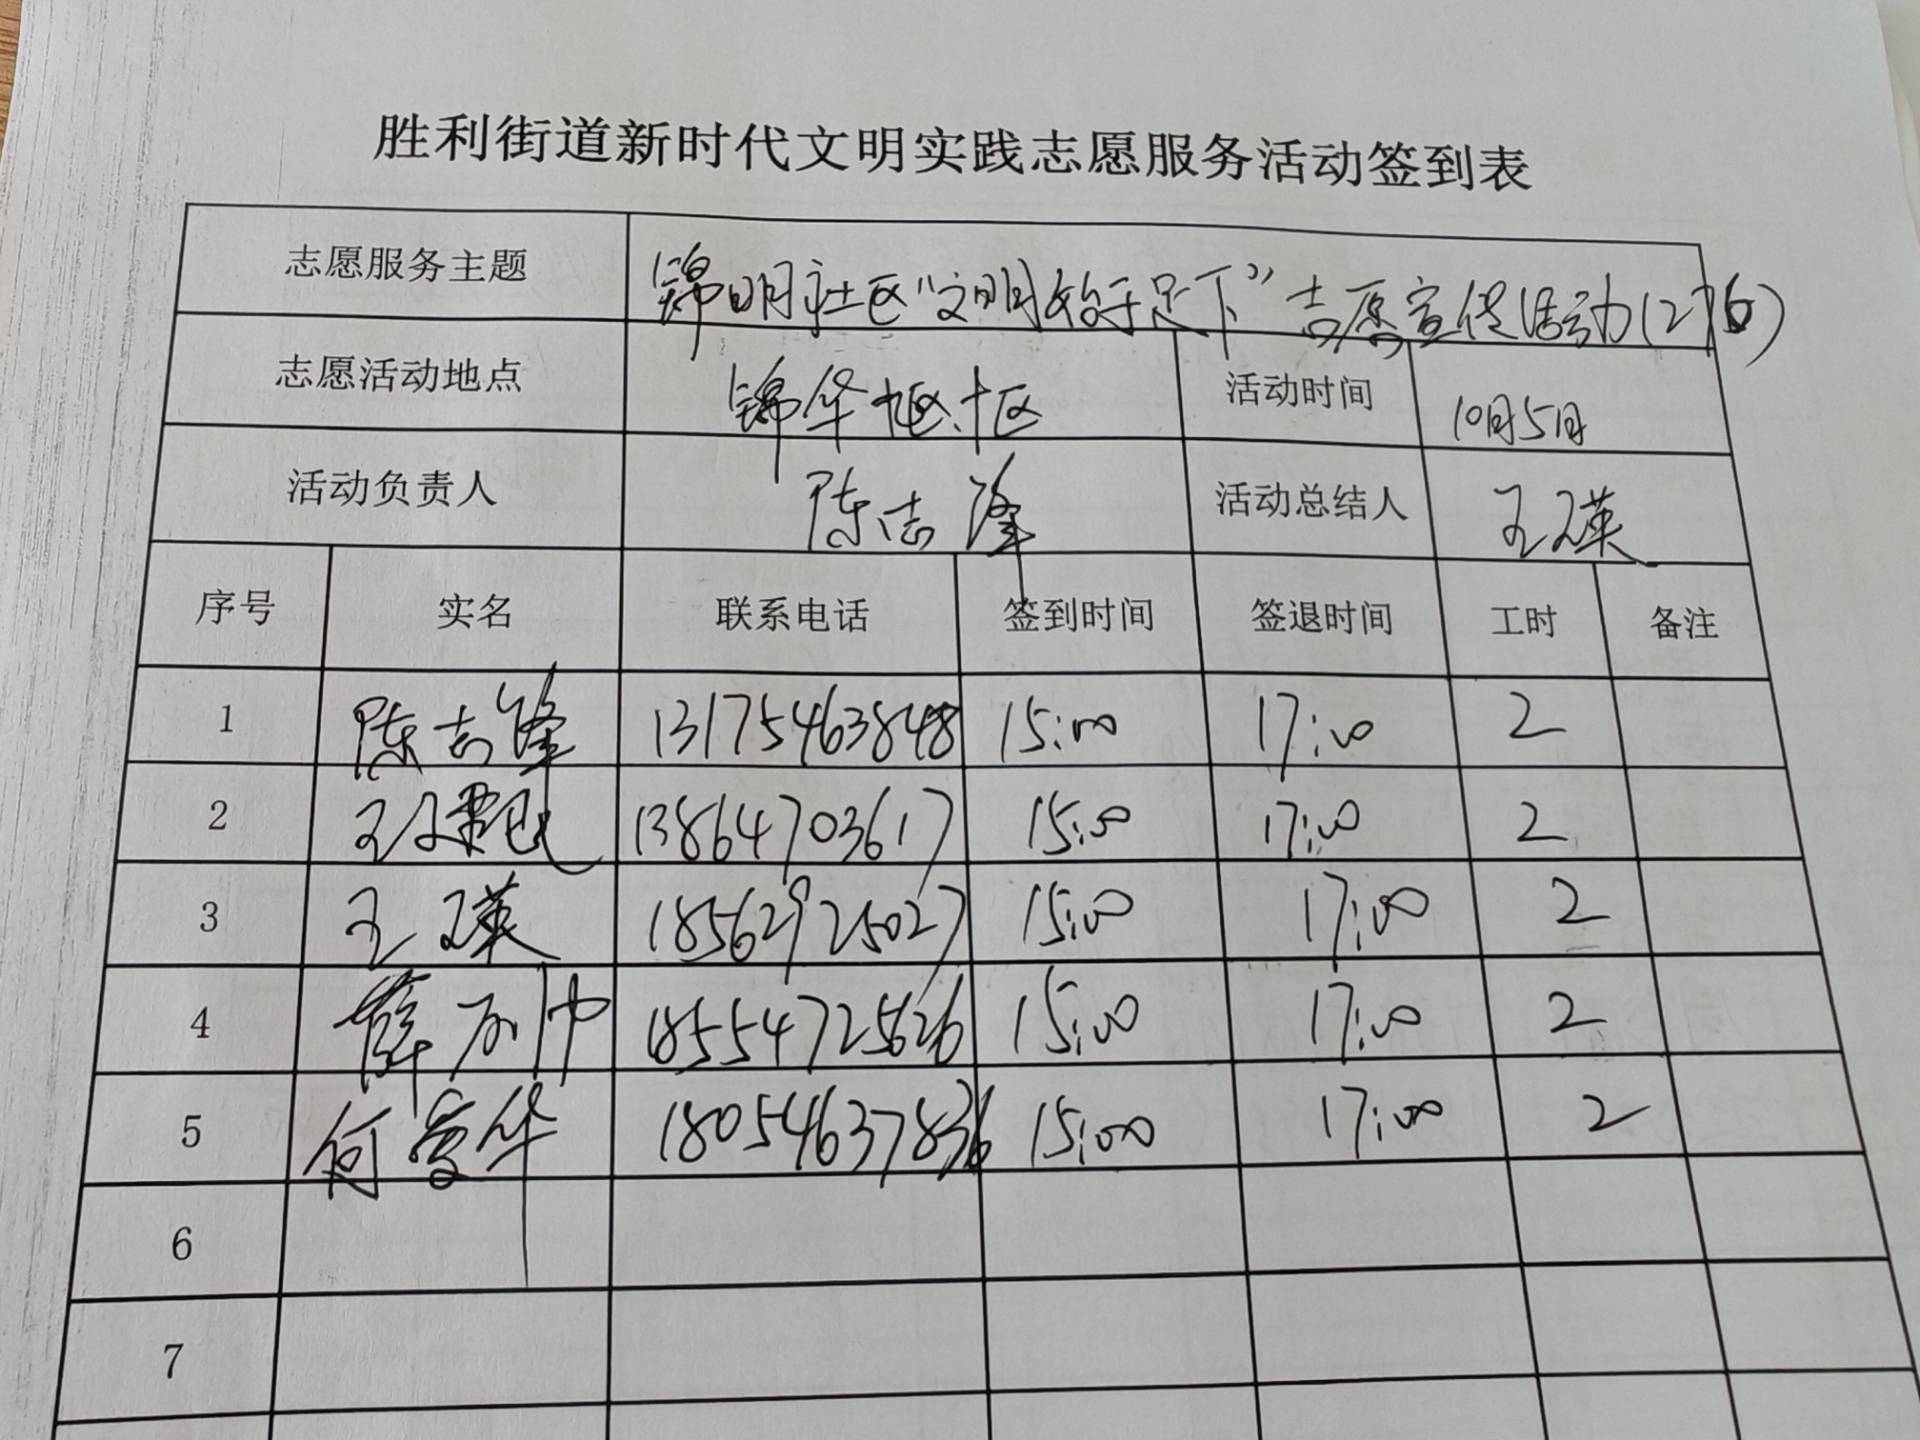 胜利街道新时代文明实践志愿服务活动签到表
志愿服务主题 锦明社区“文明始于足下”志愿宣传活动(276)
志愿活动地点 锦华 活动时间 10月5日
活动负责人 陈志隆 活动总结人 王瑛
序号 实名 联系电话 签到时间 签退时间 工时 备注
1 陈志隆 13175463848 15:00 17:00 2
2 王 13864703617 15:00 17:00 2
3 王瑛 18562925027 15:00 17:00 2
4 薛 18554725626 15:00 17:00 2
5 何爱华 18054637836 15:00 17:00 2
6
7